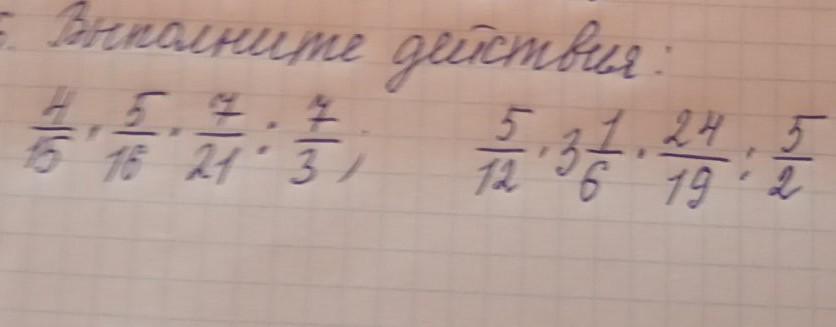 5. Выполните действия:
4/15 · 5/16 · 7/21 : 7/3 ; 5/12 · 3 1/6 · 24/19 : 5/2